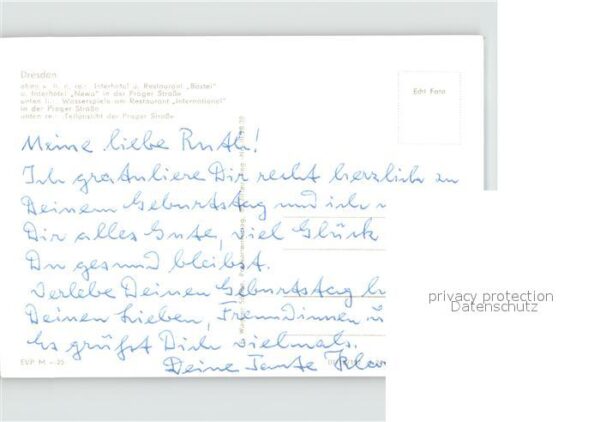 Dresden
oben v. li. n. re.: Interhotel u. Restaurant „Bastei“
u. Interhotel „Newa“ in der Prager Straße
unten li.: Wasserspiele am Restaurant „International“
in der Prager Straße
unten re.: Teilansicht der Prager Straße
Echt Foto
Meine liebe Ruth!
Ich gratuliere Dir recht herzlich zu
Deinem Geburtstag und ich
Dir alles Gute, viel Glück
Du gesund bleibst.
Verlebe Deinen Geburtstag
Deinen Lieben, Freundinnen u
Es grüßt Dich vielmals.
Deine Tante
EVP M -,25
privacy protection
Datenschutz